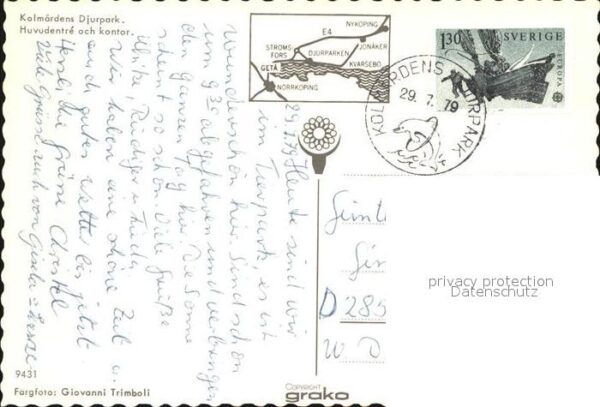 Kolmårdens Djurpark.
Huvudentré och kontor.
NYKÖPING
E4
JONÅKER
STRÖMS
FORS
DJURPARKEN
KVARSEBO
GETÅ
NORRKÖPING
KOLMÅRDENS DJURPARK
29. 7. 79
1.30 SVERIGE
EUROPA
29.7.79 Heute sind wir
im Tierpark, es ist
wunderschön hier. Sind schon
um 9 30 abgefahren und verbringen
den ganzen Tag hier. Die Sonne
scheint so schön. Viele Grüße
Ulrike, Rüdiger u.
Wir haben eine schöne Zeit u.
auch gutes Wetter bis jetzt.
Herzliche Grüsse Christel
Viele Grüsse auch von
D 285
W. D
privacy protection
Datenschutz
9431
Färgfoto: Giovanni Trimboli
COPYRIGHT
grako